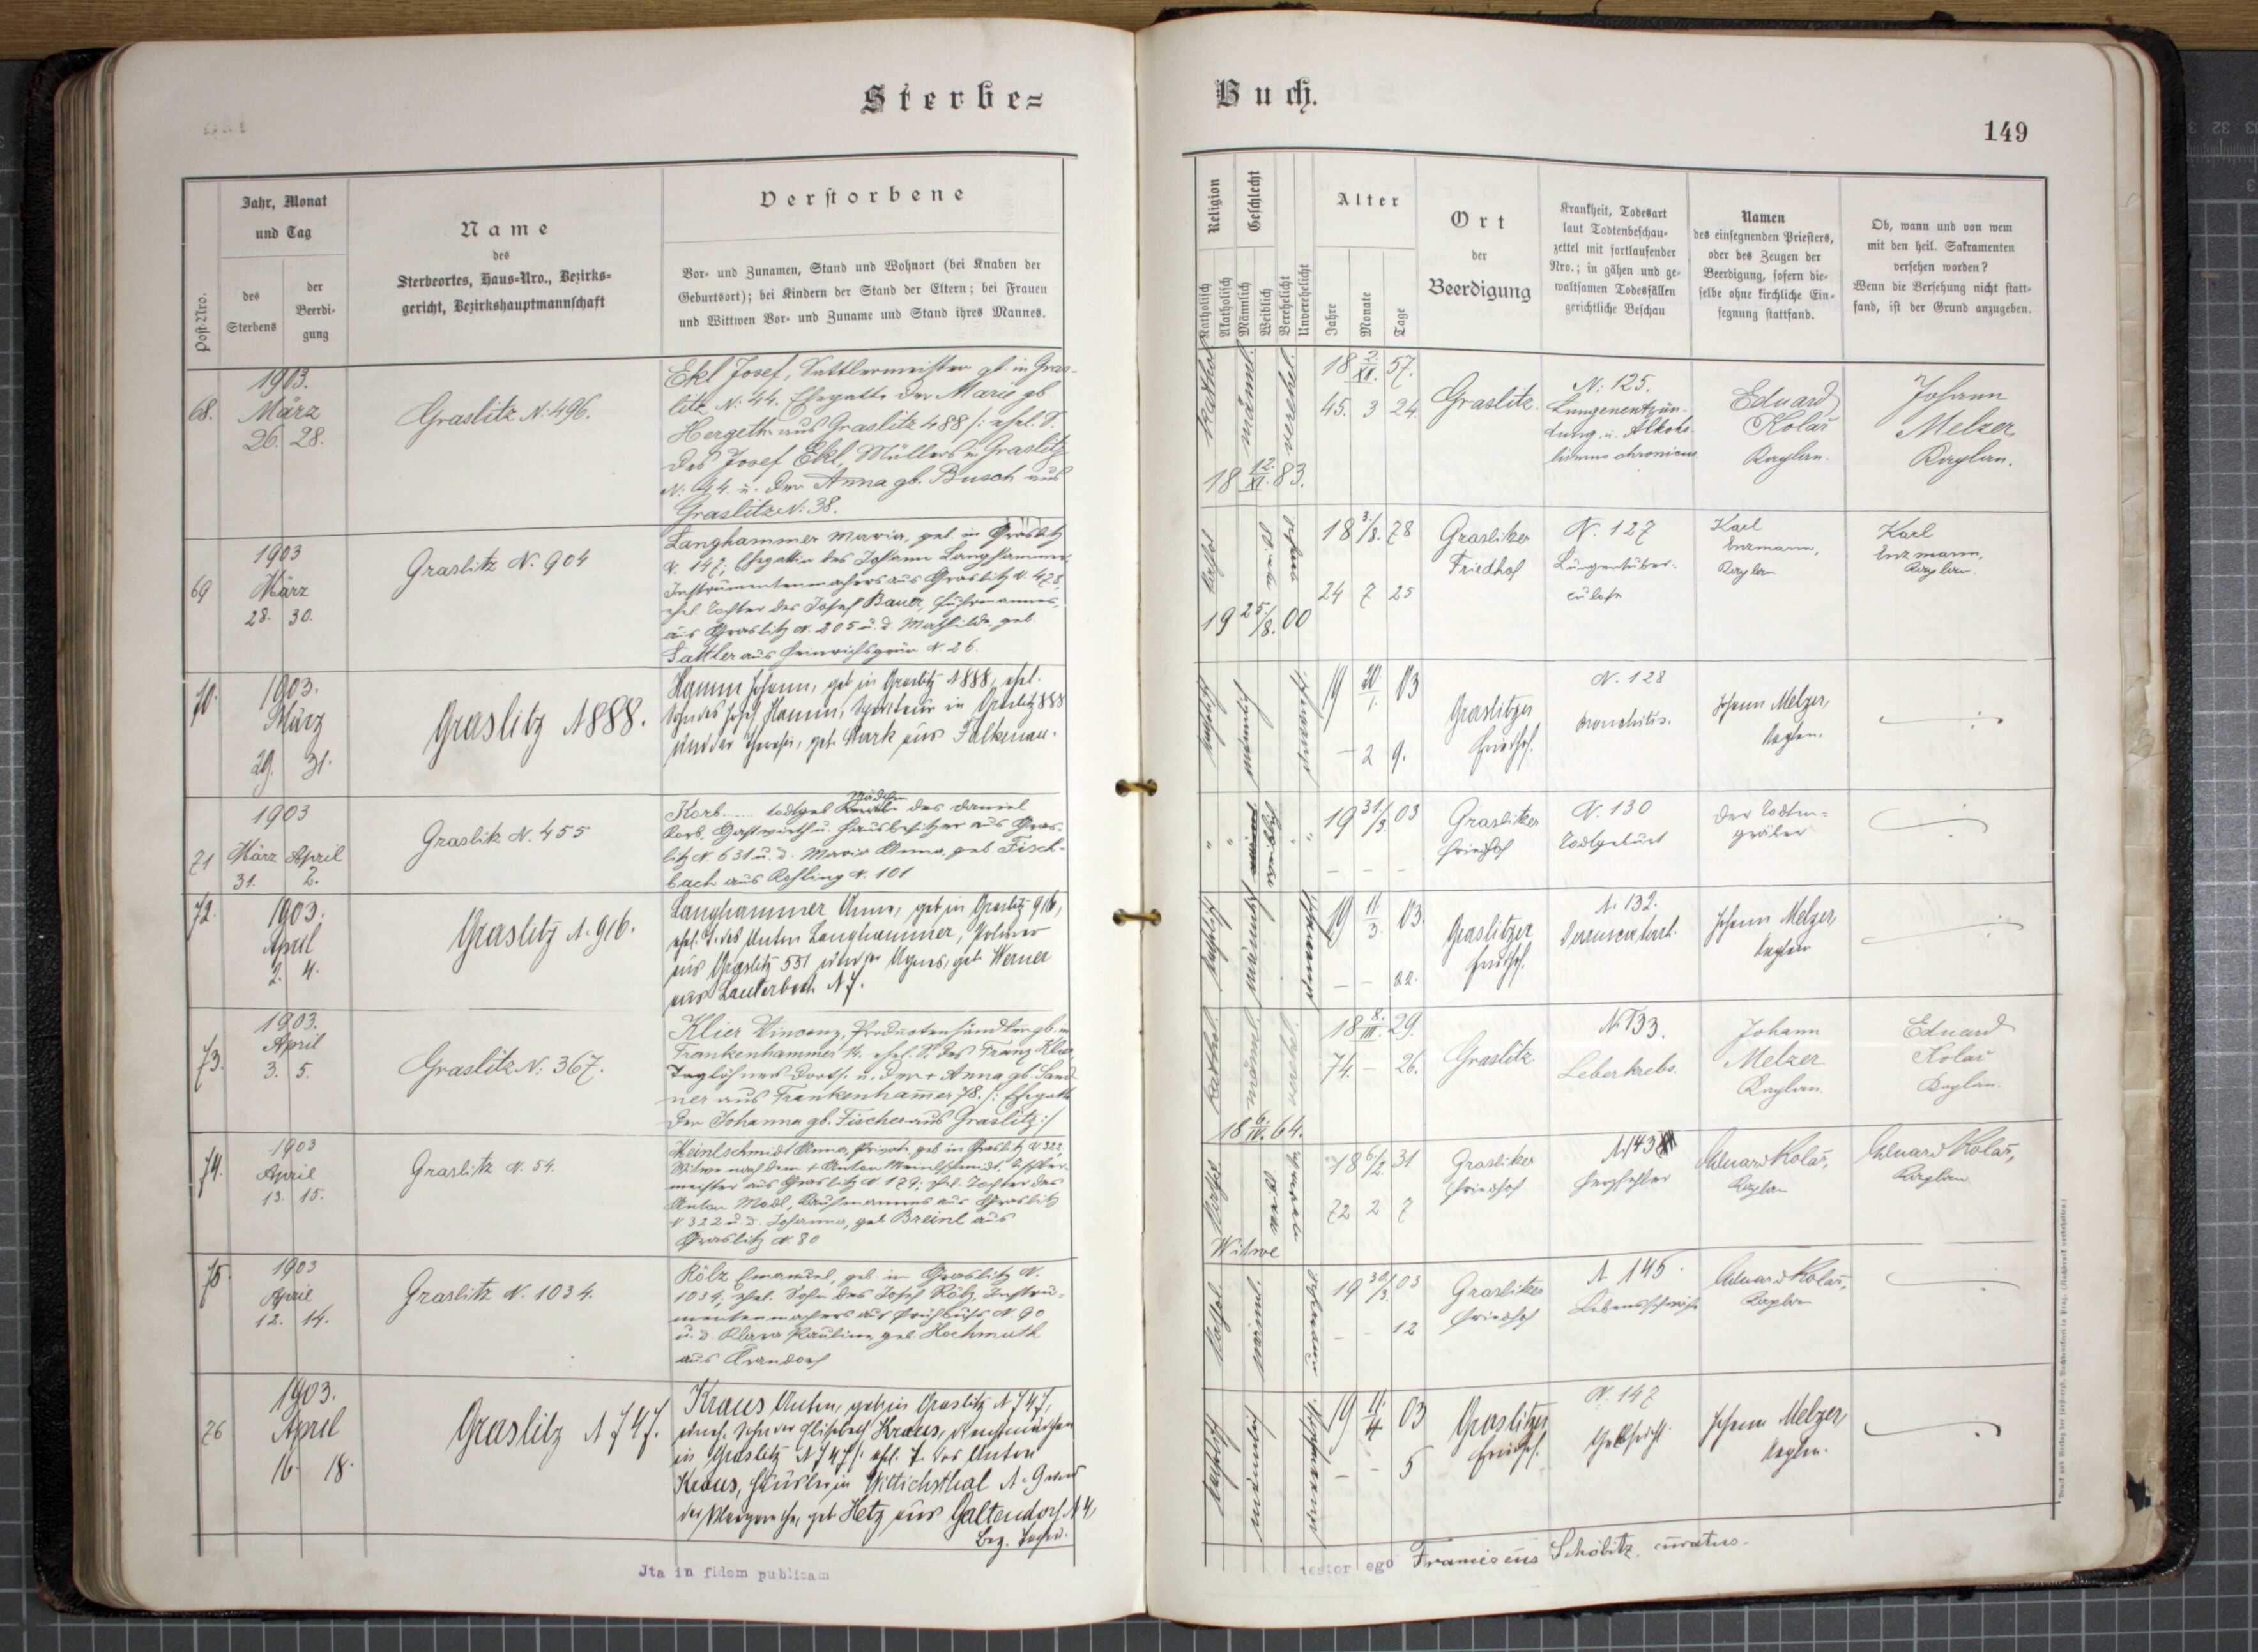 Sterbe=
Jahr, Monat
und Tag
Post-Nro.
des
Sterbens
der
Beerdi-
gung
Name
des
Sterbeortes, Haus-Nro., Bezirks=
gericht, Bezirkshauptmannschaft
Verstorbene
Vor- und Zunamen, Stand und Wohnort (bei Knaben der
Geburtsort); bei Kindern der Stand der Eltern; bei Frauen
und Wittwen Vor- und Zuname und Stand ihres Mannes.
68.
1903.
März
26. 28.
Graslitz N: 496.
Ekl Josef, Sattlermeister gb in Gras-
litz N: 44. Ehegatte der Marie gb
Hergeth aus Graslitz 488 /: ehel. S.
des Josef Ekl, Müllers in Graslitz
N: 44. u. der Anna gb. Busch aus
Graslitz N: 38.
69
1903
März
28. 30.
Graslitz N. 904
Langhammer Maria, geb. in Graslitz
N. 147, Ehegattin des Johann Langhammer
Instrumentenmachers aus Graslitz N. 428,
ehel Tochter des Josef Bauer, Fuhrmannes,
aus Graslitz N. 205 u. d. Mathilde geb.
Sattler aus Heinrichsgrün N. 26.
70.
1903.
März
29. 31.
Graslitz N 888.
Hamm Johann, geb in Graslitz N 888, ehel.
Sohn des Josef Hamm, in Graslitz 888
und der Theresia, geb. Mark aus Falkenau.
71
1903
März April
31. 2.
Graslitz N. 455
Korb ..... todtgeb Mädchen des Daniel
Korb, Gastwirth u. Hausbesitzer aus Gras-
litz N. 631 u. d. Maria Anna, geb. Fisch-
bach aus N. 101
72.
1903.
April
2. 4.
Graslitz N. 916.
Langhammer Anna, geb in Graslitz 916,
ehel. T. des Anton Langhammer,
aus Graslitz 551 und der Agnes, geb Werner
aus Lauterbach N 7.
73.
1903.
April
3. 5.
Graslitz N: 367.
Klier Vincenz, Productenhändler gb. in
Frankenhammer 14. ehel. S. des Franz Klier
Taglöhners dorts. u. der + Anna gb. Sand-
ner aus Frankenhamer 78. /: Ehegatte
der Johanna gb. Fischer aus Graslitz :/
74.
1903
April
13. 15.
Graslitz N. 54.
Meinlschmidt Anna, Private, geb in Graslitz N 322,
Witwe nach dem + Anton Meinlschmidt,
meister aus Graslitz N 179; ehel. Tochter des
Anton Modl, Kaufmannes aus Graslitz
N 322 u. d. Johanna, geb Breinl aus
Graslitz N. 80
75.
1903
April
12. 14.
Graslitz N. 1034.
Kölz Emanuel, geb. in Graslitz N.
1034, ehel. Sohn des Josef Kölz, Instru-
mentenmachers aus Frühbuss N 90
u. d. Klara Pauline geb. Hochmuth
aus
76
1903.
April
16. 18.
Graslitz N 747.
Kraus Anton, geb in Graslitz N 747,
unehel. Sohn der Elisabeth Kraus,
in Graslitz N 747 /: ehel. T. des Anton
Kraus, Häusler in Wittichsthal N 9 und
der Margaretha, geb Hetz aus Galtendorf N 4,
Jta in fidem publicam
Buch.
149
Religion
Katholisch
Akatholisch
Geschlecht
Männlich
Weiblich
Verehelicht
Unverehelicht
Alter
Jahre
Monate
Tage
Ort
der
Beerdigung
Krankheit, Todesart
laut Todtenbeschau-
zettel mit fortlaufender
Nro.; in gähen und ge-
waltsamen Todesfällen
gerichtliche Beschau
Namen
des einsegnenden Priesters,
oder des Zeugen der
Beerdigung, sofern die-
selbe ohne kirchliche Ein-
segnung stattfand.
Ob, wann und von wem
mit den heil. Sakramenten
versehen worden?
Wenn die Versehung nicht statt-
fand, ist der Grund anzugeben.
kathol.
männl.
verehel.
18 2./XI. 57.
45. 3 24
18 12./XI. 83.
Graslitz.
N: 125.
Lungenentzün-
dung u. Alkoho-
lismus chronicus
Eduard
Kolař
Kaplan.
Johann
Melzer
Kaplan.
18 3/8. 78
24 7 25
19 25/8. 00
Graslitzer
Friedhof
N. 127
Lungentuber-
culose
Karl
Enzmann,
Kaplan
Karl
Enzmann,
Kaplan
19 20/1. 03
– 2 9.
Graslitzer
Friedhof.
N. 128
Bronchitis.
Johann Melzer,
Kaplan.
19 31/3. 03
Graslitzer
Friedhof
N. 130
Todtgeburt
Der Todten-
gräber
19 11/3 03
– – 22.
Graslitzer
Friedhof.
N. 132.
Darmcatarrh.
Johann Melzer,
Kaplan
kathol.
männl.
18 8./III. 29.
74. – 26.
18 6./IV. 64.
Graslitz
N. 133.
Leberkrebs.
Johann
Melzer
Kaplan.
Eduard
Kolař
Kaplan.
18 6/2. 31
72 2 7
Witwe
Graslitzer
Friedhof
N. 143
Herzfehler
Eduard Kolař,
Kaplan
Eduard Kolař,
Kaplan
19 30/3. 03
– – 12
Graslitzer
Friedhof
N 145.
Lebensschwäche
Eduard Kolař,
Kaplan
19 11./4 03
– – 5
Graslitzer
Friedhof.
N. 147
Gelbsucht.
Johann Melzer,
Kaplan.
testor ego Franciscus Schöbitz, curatus.